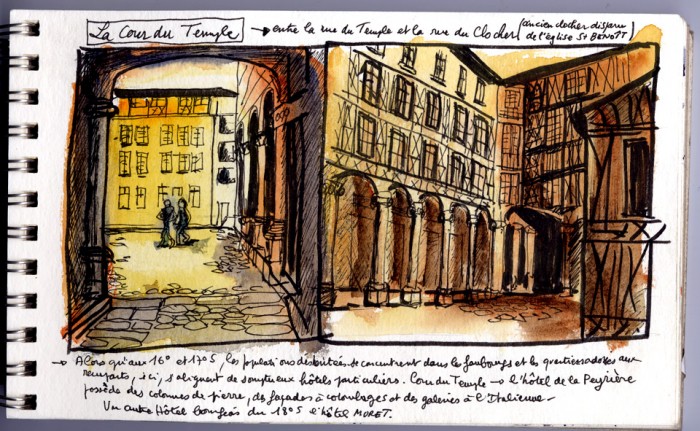 La Cour du Temple → entre la rue du Temple et la rue du Clocher (ancien clocher disparu
de l'église St BENOÎT)
→ Alors qu'aux 16° et 17°S, les populations déshéritées se concentrent dans les faubourgs et les quartiers adossés aux
remparts, ici, s'alignent de somptueux hôtels particuliers. Cour du Temple → l'hôtel de la Peyrière
possède des colonnes de pierre, des façades à colombages et des galeries à l'Italienne -
Un autre Hôtel bourgeois du 18°S l'hôtel MURET.